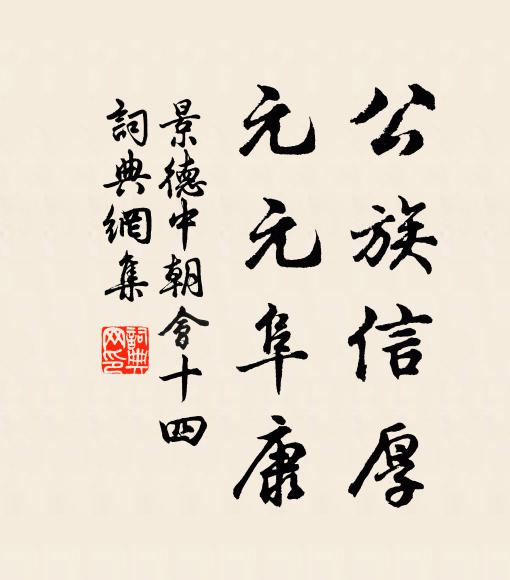 公族信厚
元元阜康
景德中朝會十四
詞典網集
詞典网印